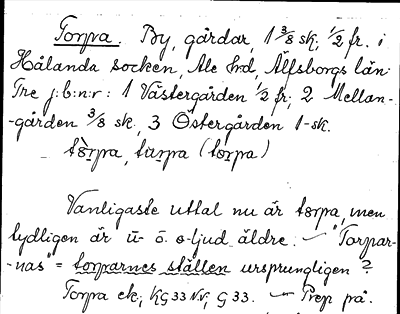 Torpa. By, gårdar, 1 3/8 sk; 1/2 fr. i
Hålanda socken, Ale hrd, Älfsborgs län.
Tre j:b:n:r: 1 Västergården 1/2 fr; 2 Mellan-
-gården 3/8 sk, 3 Östergården 1 sk.
tòrpa, tùrpa (torpa)
Vanligaste uttal nu är torpa, men
tydligen är ū- ō- o-ljud äldre. "Torpar-
-nas" = torparnes ställen ursprungligen?
Torpa ek; KG 33 N.V; G 33. Prep på.